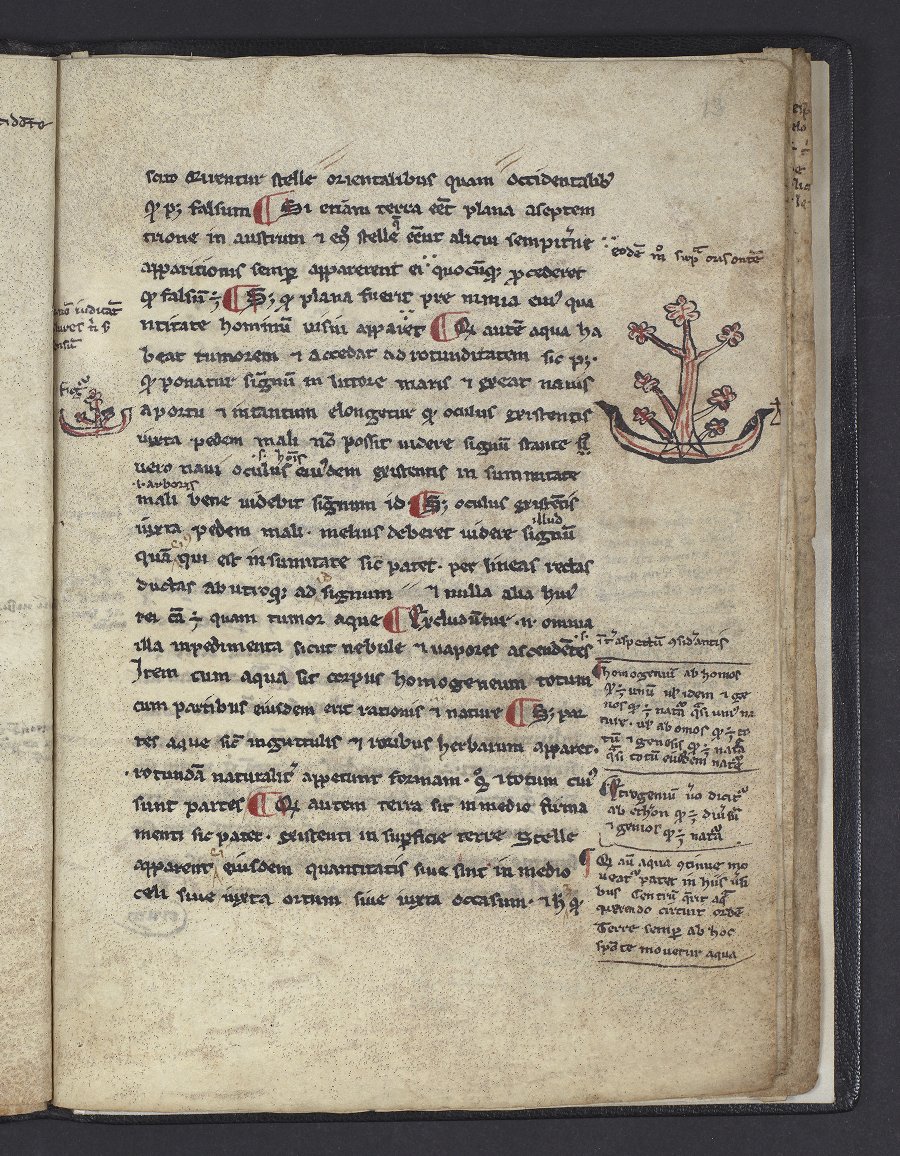 scito Orirentur stelle orientalibus quam occidentalib'
qᵈ pȝ falsum ¶ Si etiam terra eēt plana a septem
trione in austrum ⁊ eꝯ stelle q̄ eēnt alicui sempit'ne
apparitionis semp̄ apparerent ei quocūqȝ p̄cederet
qᵈ falsū ÷ ¶ Sȝ qᵈ plana fuerit pre nimia eiꝰ qua
ntitate hominū visui appaīet ¶ Qᵈ autē aqua ha
beat tumorem ⁊ accedat ad rotunditatem sic pȝ·
qᵈ ponatur signū in littore maris ⁊ exeat navis
a portu ⁊ in tantum elongetur qᵈ oculus existentis
iuxta pedem mali nō possit videre signū stante
·s· hōis
vero navi oculus eiꝰdem existentis in summitate
·i· arboris
mali bene videbit signum id ¶ Sȝ oculus existētis
illud
iuxta pedem mali · melius deberet videre signū
quā qui est in sumitate sic patet · per lineas rectas
ductas ab utroqȝ ad signum ⁊ nulla alia huiꝰ
rei cā ÷ quam tumor aque ¶ Excludantur · n · omnia
illa inpedimenta sicut nebule ⁊ vapores ascendētes
Item cum aqua sit corpus homogeneum totum
cum partibus eiusdem erit rationis ⁊ nature ¶ Sȝ par
tes aque sic̄ in guttulis ⁊ roribus herbarum apparet ·
· rotundā naturalit' appetunt formam · gᵒ ⁊ totum cuiꝰ
sunt partes ¶ Qᵈ autem terra sit in medio firma
menti sic patet · existenti in sup̄ficie terre Stelle
apparent eiusdem quantitatis sive sint in medio
celi sive iuxta ortum sive iuxta occasum · ⁊ h̄ qꝛ
eodē mᵒ supᵃ orisontē
īt'aspectū ꝯsid'antis
homogeniū ab homos
qᵈ ÷ unū vl' idem ⁊ ge
nos qᵈ ÷ natᵃ qᵃsi uniꝰ na
ture · vl' ab omos qᵈ ÷ to
tū ⁊ genosis qᵈ ÷ natᵃ
qᵃsi totū eiusdem natᵉ
Etrogeniū v̊o dicit'
ab eth'on qᵈ ÷ div'sū
⁊ genos qᵈ ÷ natᵃ
¶ Qᵈ aū aqua ꝯtinue mo
veat' patet in hiis v'si
bus Centrū q'rit aqᵃ
querendo circuit orbē
Terre semp̄ ab hoc
spōte movetur aqua